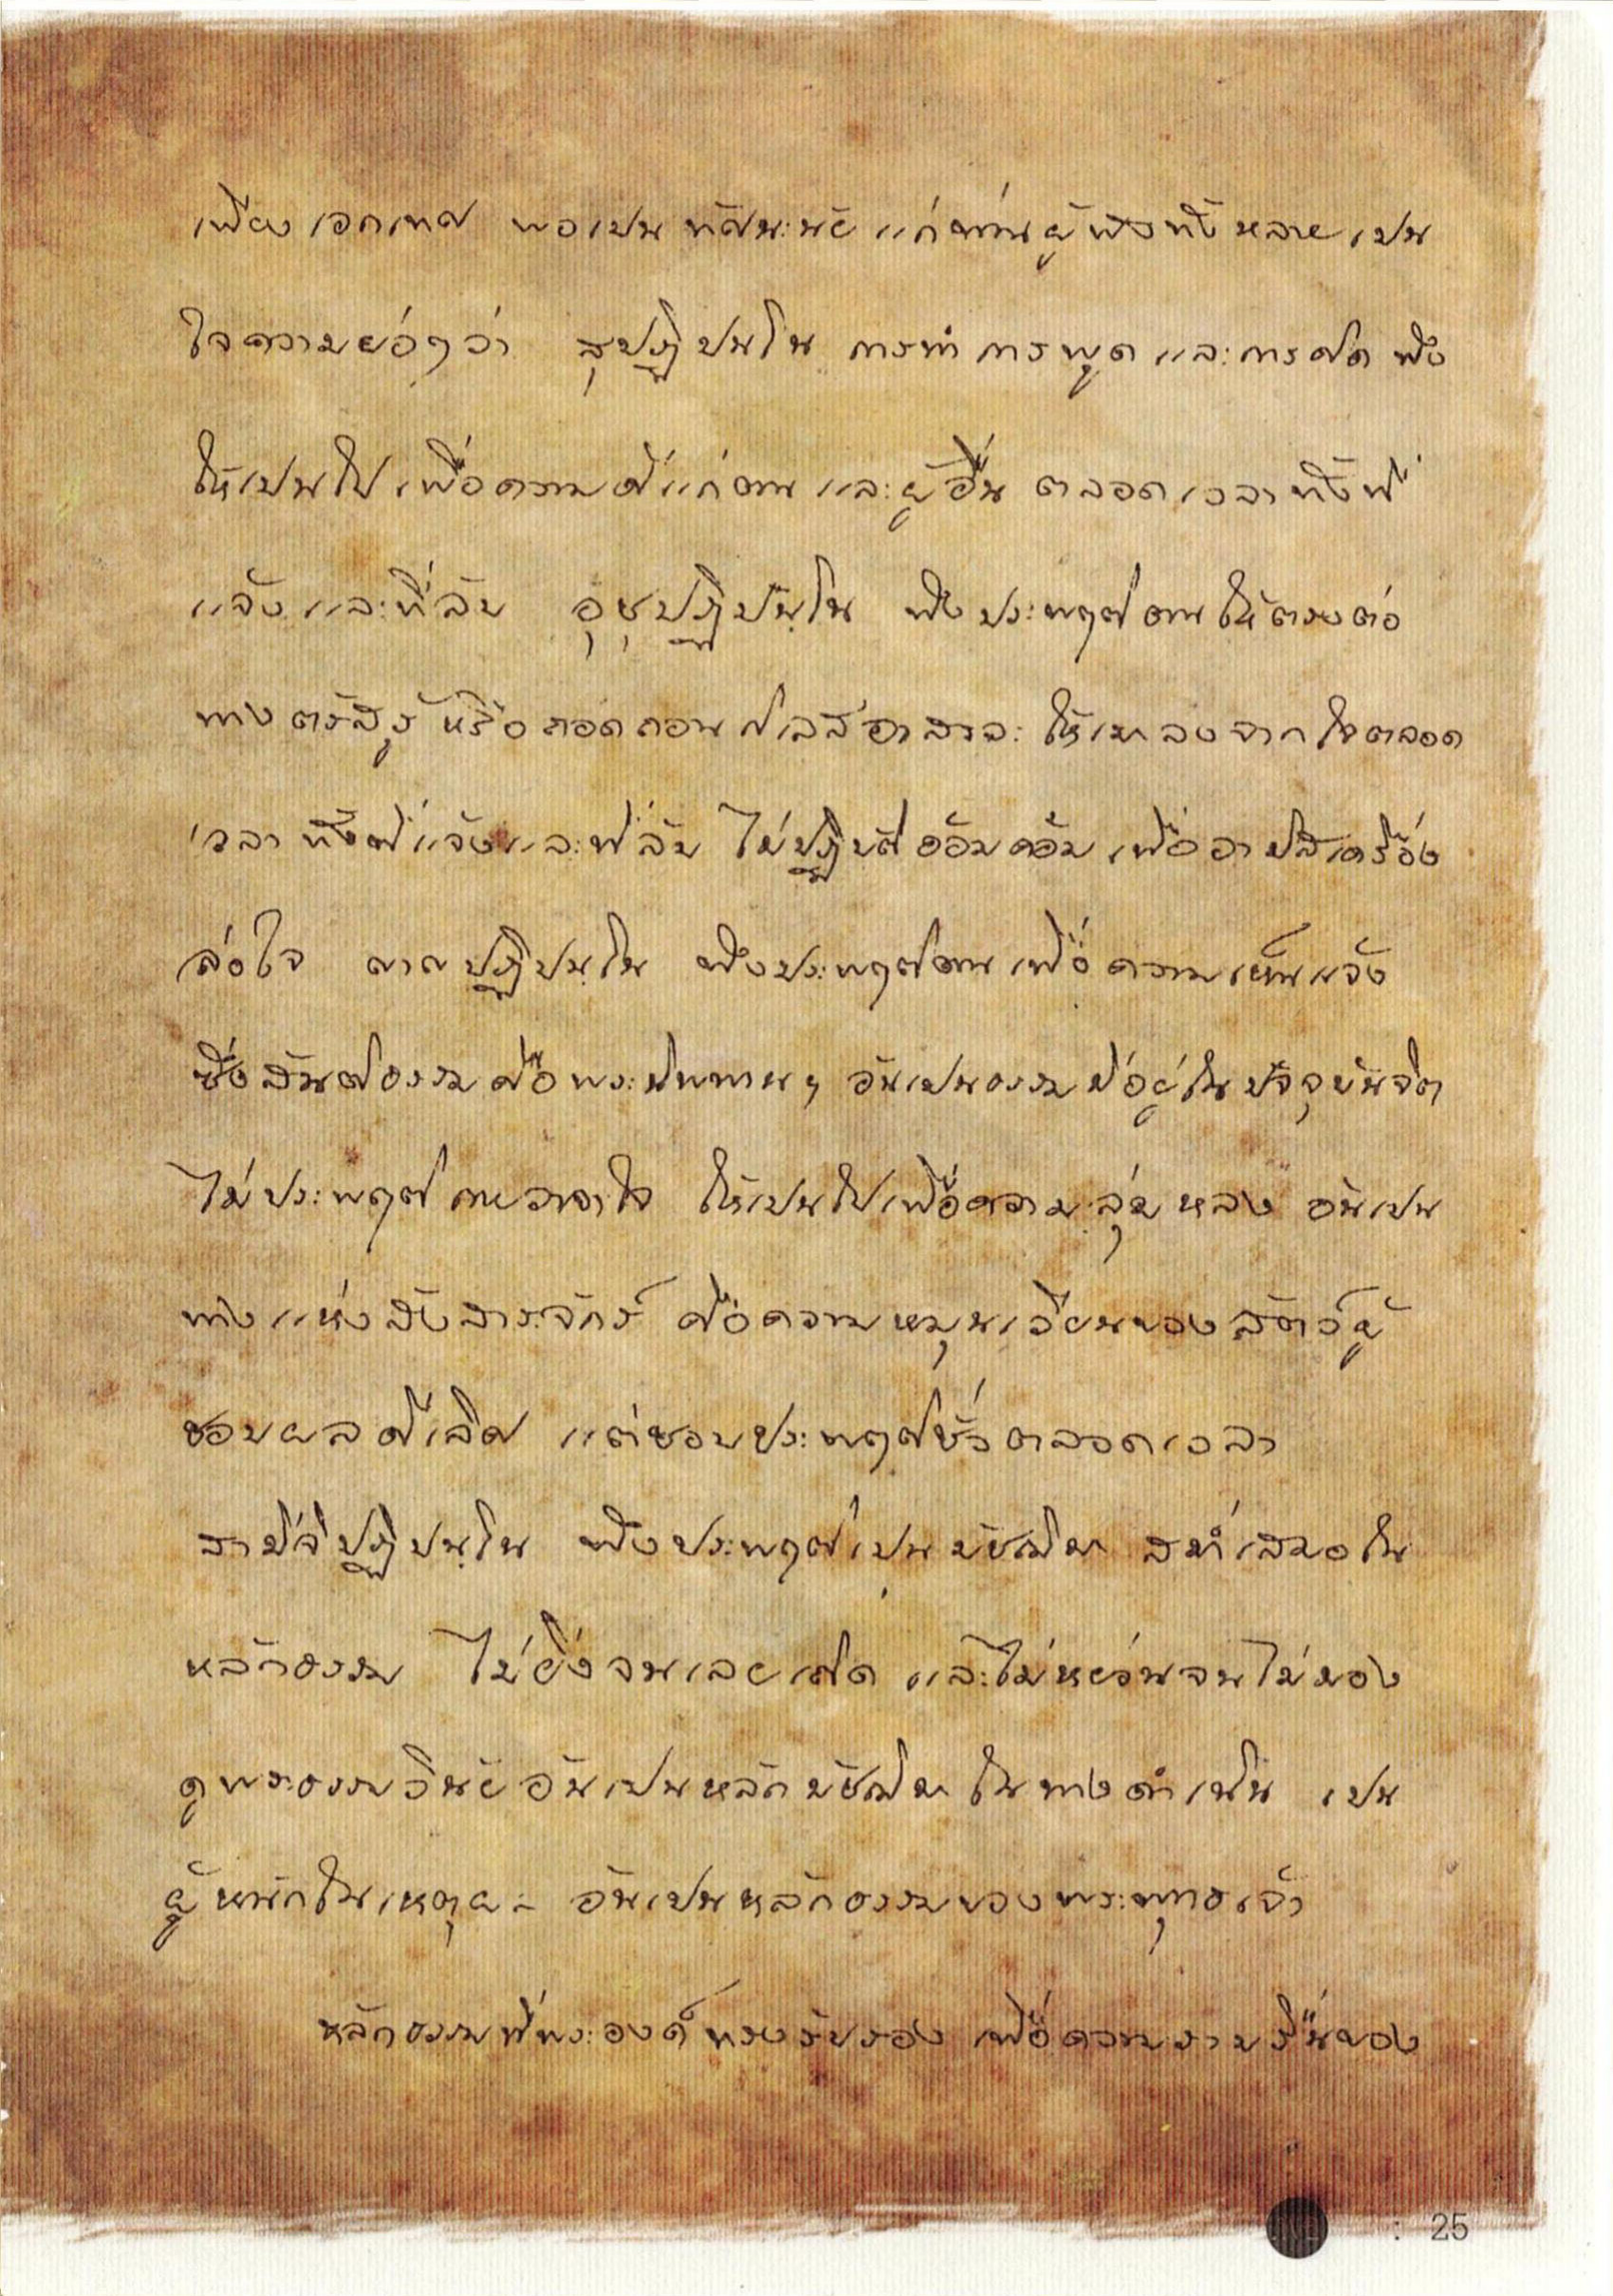 เพียงเอกเทศ พอเปนทัศนะนัย แก่ท่านผู้ฟังทั้งหลาย เปน
ใจความย่อๆว่า สุปฏิปนฺโน การทำ การพูด และการคิด พึง
ให้เปนไปเพื่อความดีแก่ตน และผู้อื่น ตลอดเวลาทั้งที่
แจ้งและที่ลับ อุชุปฏิปันฺโน พึงประพฤติตนให้ตรงต่อ
ทางตรัสรู้ หรือถอดถอนกิเลสอาสวะ ให้เบาลงจากใจตลอด
เวลา ทั้งที่แจ้งและที่ลับ ไม่ปฏิบัติอ้อมค้อม เพื่ออามิสเครื่อง
ล่อใจ ญาญปฏิปนฺโน พึงประพฤติตนเพื่อความเห็นแจ้ง
ซึ่งสันติธรรมคือพระนิพพานๆ อันเปนธรรมมีอยู่ในปัจจุบันจิต
ไม่ประพฤติกายวาจาใจ ให้เปนไปเพื่อความลุ่มหลง อันเปน
ทางแห่งสังสารจักร์ คือความหมุนเวียนของสัตว์ผู้
ชอบผลดีเลิศ แต่ชอบประพฤติชั่วตลอดเวลา
สามีจิปฏิปนฺโน พึงประพฤติเปนมัชฌิมา สม่ำเสมอใน
หลักธรรม ไม่ยิ่งจนเลยเถิด และไม่หย่อนจนไม่มอง
ดูพระธรรมวินัย อันเปนหลักมัชฌิมา ในทางดำเนิน เปน
ผู้หนักในเหตุผล อันเปนหลักธรรมของพระพุทธเจ้า
หลักธรรมที่พระองค์ทรงรับรอง เพื่อความราบรื่นของ
: 25